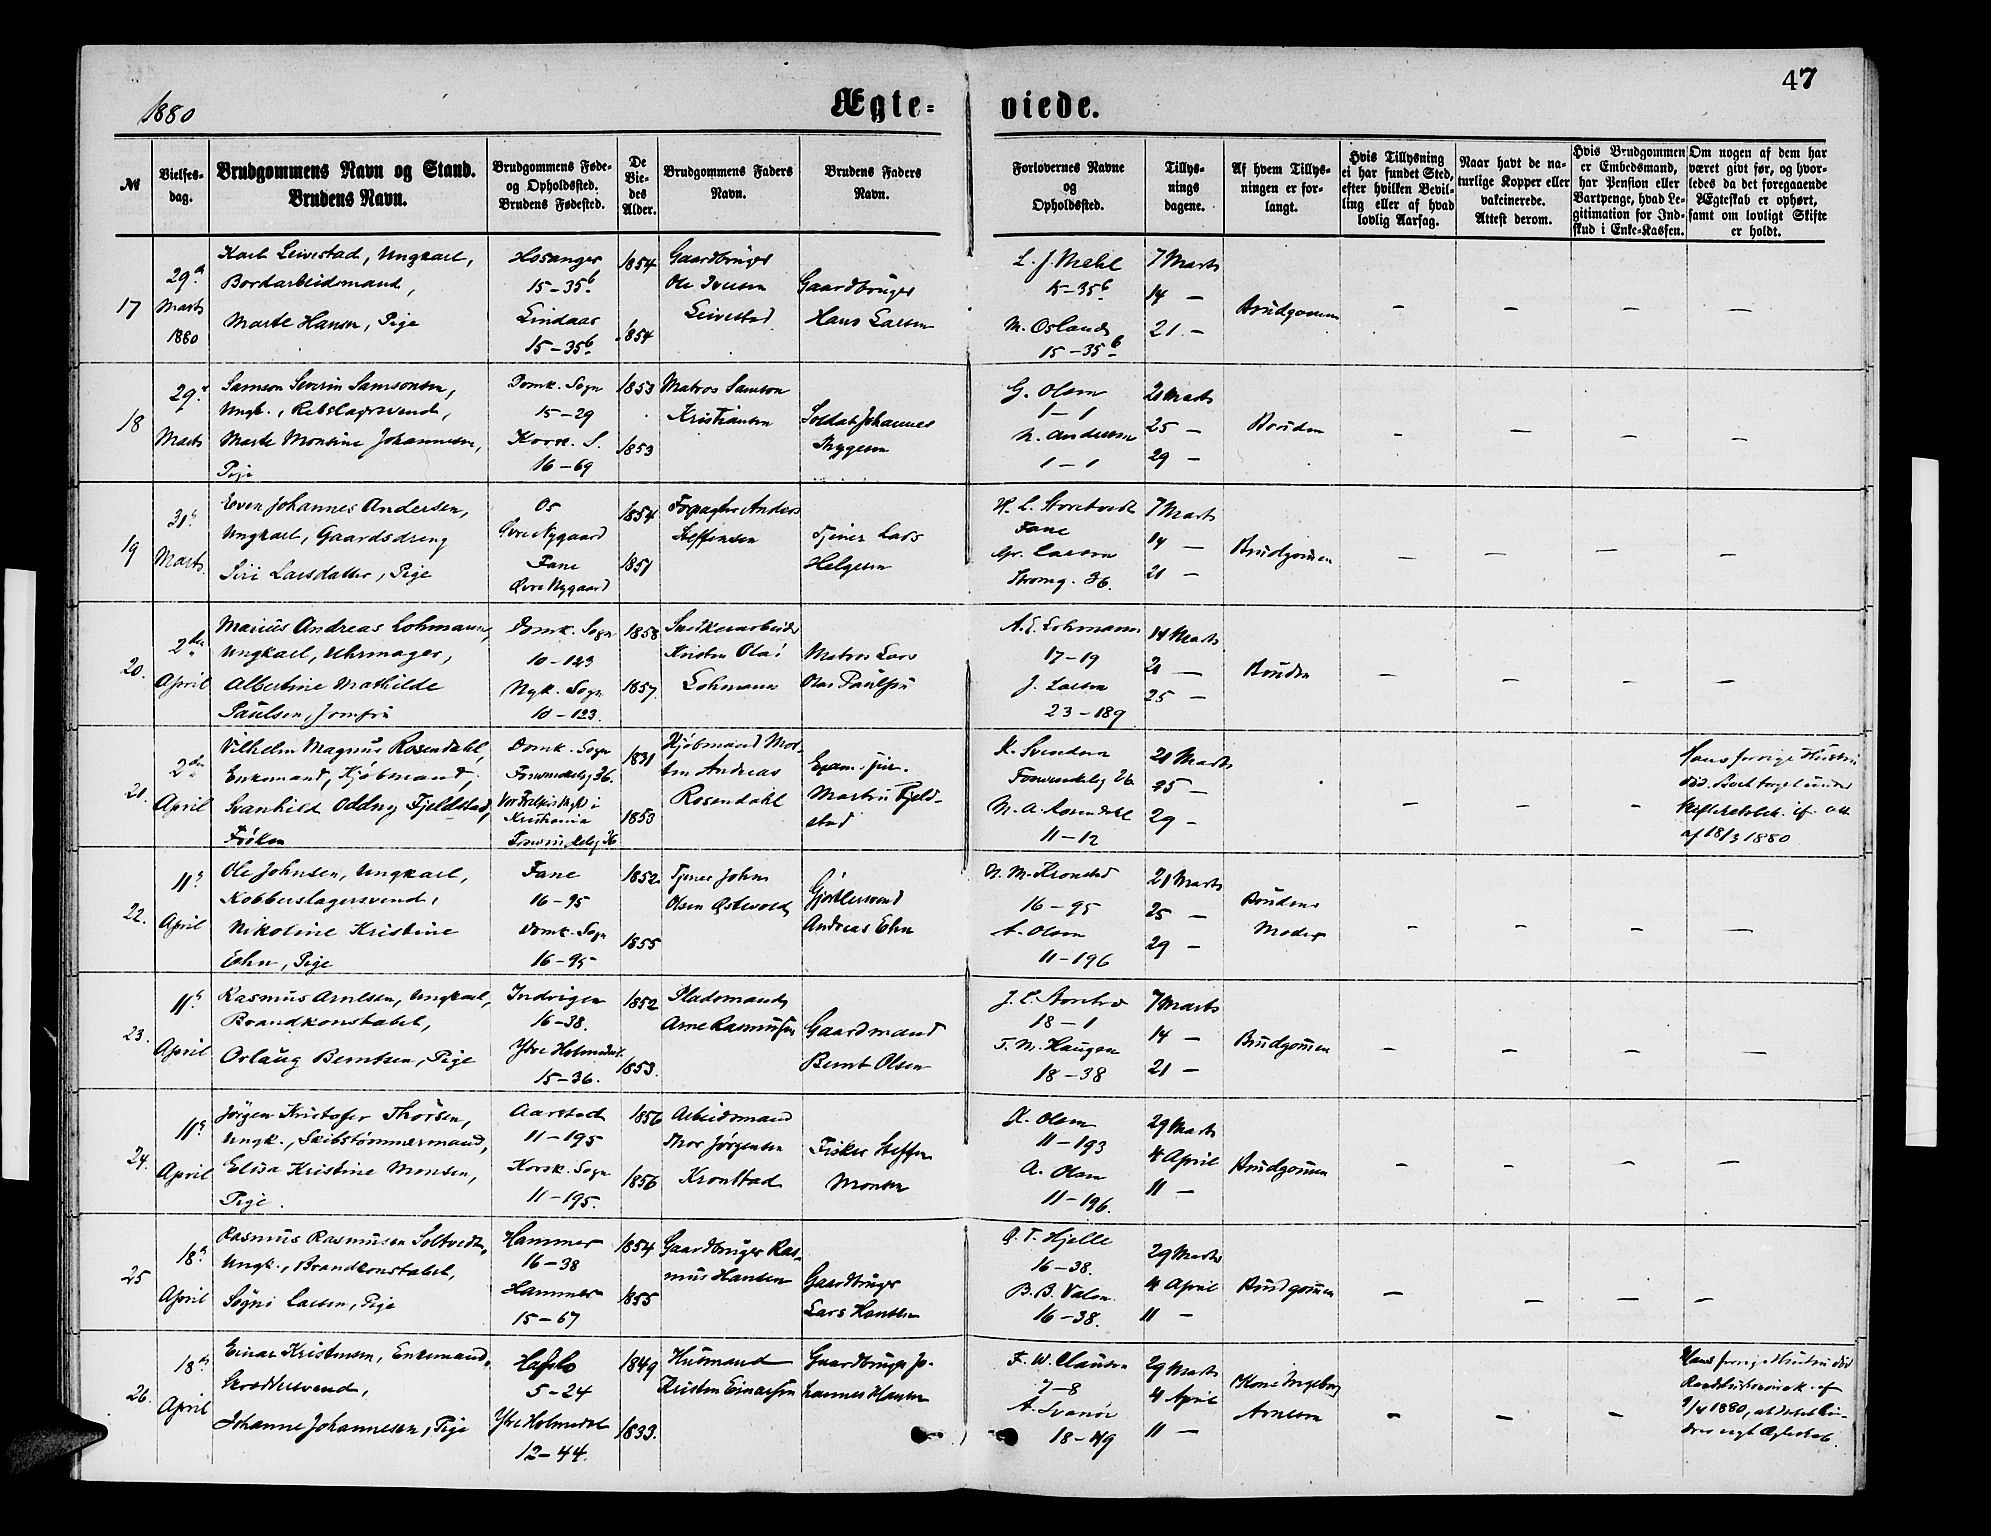 1880
Ægte-
viede.
47
№
Vielses-
dag.
Brudgommens Navn og Stand.
Brudens Navn.
Brudgommens Føde-
og Opholdssted.
Brudens Fødested.
De
Vie-
des
Alder.
Brudgommens Faders
Navn.
Brudens Faders
Navn.
Forlovernes Navne
og
Opholdssted.
Tillys-
nings
dagene.
Af hvem Tillys-
ningen er for-
langt.
Hvis Tillysning
ei har fundet Sted,
efter hvilken Bevil-
ling eller af hvad
lovlig Aarsag.
Naar havt de na-
turlige Kopper eller
vakcinerede.
Attest derom.
Hvis Brudgommen
er Embedsmand,
har Pension eller
Vartpenge, hvad Le-
gitimation for Ind-
skud i Enke-Kassen.
Om nogen af dem har
været givt før, og hvor-
ledes da det foregaaende
Ægteskab er ophørt,
samt om lovligt Skifte
er holdt.
17
29de
Marts
1880
Karl Leivestad, Ungkarl,
Bordarbeidsmand,
Marte Hansen, Pige
Hosanger
15-35b
Lindaas
15-35b
1854
1854
Gaardbruger
Ole Iversen
Leivestad
Gaardbruger
Hans Larsen
L. J. Mehl
15-35b
M. Osland
15-35b
7 Marts
14 -
21 -
Brudgommen
- - - -
18
29de
Marts
Samson Severin Samsonsen,
Ungk., Rebslagersvend,
Marte Montine Johannesen,
Pige
Domk. Sogn
15-29
Korsk. S.
16-69
1853
1853
Matros Samson
Kristiansen
Soldat Johannes
Thygesen
G. Olsen
1-1
N. Andersen
1-1
21 Marts
25 -
29 -
Bruden
- - - -
19
31te
Marts
Even Johannes Andersen,
Ungkarl, Gaardsdreng
Siri Larsdatter, Pige
Os
Øvre Nygaard
Fane
Øvre Nygaard
1854
1851
Forpagter Anders
Steffensen
Tjener Lars
Helgesen
H. L. Storetvedt
Fane
Gr. Larsen
Stromg. 36.
7 Marts
14 -
21 -
Brudgommen
- - - -
20.
2den
April
Marius Andreas Lohmann,
Ungkarl, Uhrmager,
Albertine Mathilde
Paulsen, Jomfru
Domk. Sogn
10-123
Nyk. Sogn
10-123.
1858
1857.
Snedkerarbeider
Kristen Olai
Lohmann
Matros Lars
Olas Paulsen
A. E. Lohmann
17-19
J. Larsen
23-189
14 Marts
21 -
25 -
Bruden
- - - -
21.
2den
April
Vilhelm Magnus Rosendahl,
Enkemand, Kjøbmand,
Svanhild Oddny Fjeldstad,
Frøken
Domk. Sogn
Kristiania
1831
1853
Kjøbmand Mor-
ten Andreas
Rosendahl
Exam. jur.
Martin Fjeld-
stad
K. Svendsen
M. A. Rosendahl
11-12
21 Marts
25 -
29 -
- - -
Hans forrige Hustru
død. Boet taget under
af 18/3 1880
22.
11te
April
Ole Johnsen, Ungkarl,
Kobberslagersvend,
Nikoline Kristine
Ehn, Pige
Fane
16-95
Domk. Sogn
16-95
1852.
1855
Tjener John
Olsen Østevold
Gjørtlersvend
Andreas Ehn
N. M. Kronstad
16-95
A. Olsen
11-196
21 Marts
25 -
29 -
Brudens
Moder
- - - -
23.
11te
April
Rasmus Arnesen, Ungkarl,
Brandkonstabel,
Orlaug Berntsen, Pige
Indvigen
16-38.
Ytre Holmedal.
15-36.
1852
1853.
Pladsmand
Arne Rasmussen
Gaardmand
Bernt Olsen
18-1
T. M. Haugen
18-38
7 Marts
14 -
21 -
Brudgommen
- - - -
24.
11te
April
Jørgen Kristofer Thorsen,
Ungk., Skibstømmermand,
Elisa Kristine Monsen,
Pige.
Aarstad
11-195
Korsk. Sogn
11-195.
1856
1856
Arbeidsmand
Thor Jørgensen
Kronstad
Fisker Steffen
Monsen
K. Olsen
11-193
A. Olsen
11-196.
29 Marts
4 April
11 -
Brudgommen
- - - -
25
18de
April
Rasmus Rasmussen Soltvedt,
Ungk., Brandkonstabel,
Sogni Larsen, Pige
Hammer
16-38
Hammer
15-67
1854
1855
Gaardbruger Ras-
mus Hansen
Gaardbruger
Lars Hansen
A. T. Hjelle
16-38.
B. B. Valen
16-38.
29 Marts
4 April
11 -
Brudgommen
- - - -
26.
18de
April
Einar Kristensen, Enkemand,
Skræddersvend,
Johanne Johannesen, Pige
Hafslo
5-24
Ytre Holmedal
12-44.
1849
1833.
Husmand
Kristen Einarsen
Gaardbruger Jo-
hannes Hansen
F. W. Clausen
7-8
A. Svanøe
18-49
29 Marts
4 April
11 -
Kone Ingeborg
Arnesen
- - -
Hans forrige Hustru død
9/4 1880, at det et